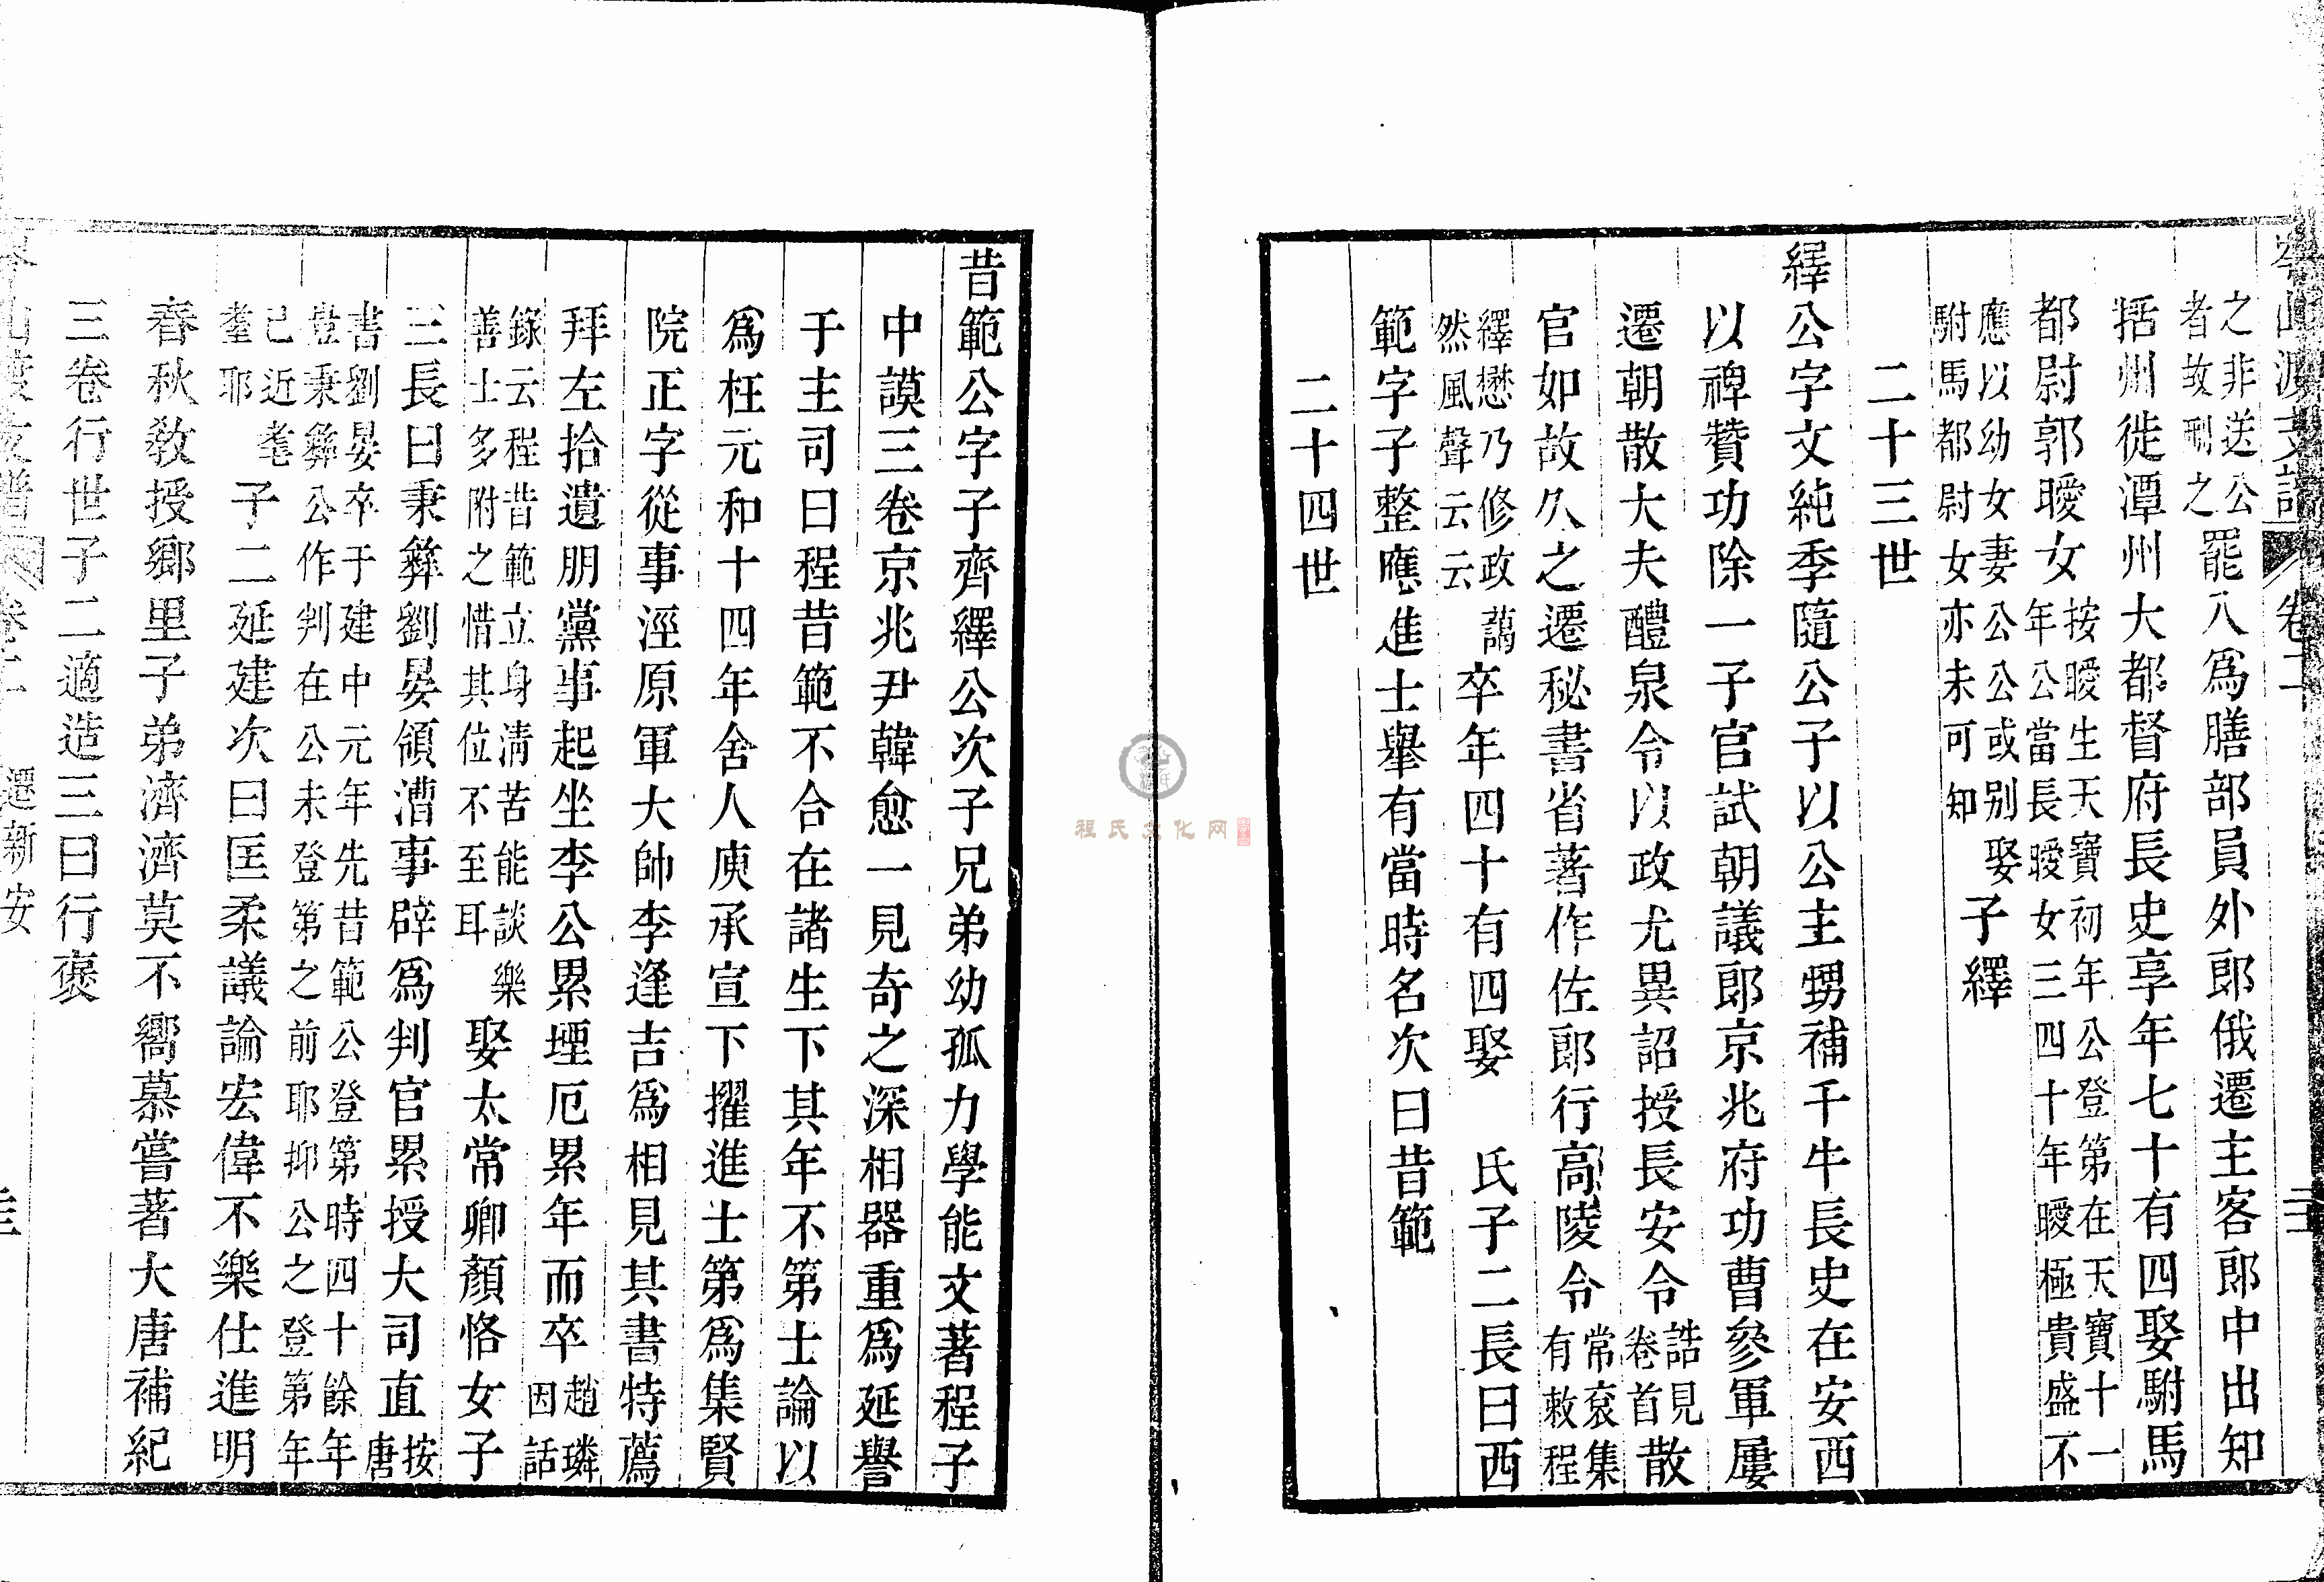 岑山渡支譜 卷二
之非送公
者故刪之
罷入為膳部員外郎俄遷主客郎中出知
括州徙潭州大都督府長史享年七十有四娶駙馬
都尉郭曖女
按曖生天寶初年公登第在天寶十一
年公當長曖女三四十年曖極貴盛不
應以幼女妻公公或别娶
駙馬都尉女亦未可知
子繹
二十三世
繹公字文純季隨公子以公主甥補千牛長史在安西
以禆贊功除一子官試朝議郎京兆府功曹參軍屢
遷朝散大夫醴泉令以政尤異詔授長安令
誥見
卷首
散
官如故久之遷秘書省著作佐郎行高陵令
常袞集
有敕程
繹懋乃修政藹
然風聲云云
卒年四十有四娶 氏子二長曰西
範字子整應進士舉有當時名次曰昔範
二十四世
昔範公字子齊繹公次子兄弟幼孤力學能文著程子
中謨三卷京兆尹韓愈一見奇之深相器重為延譽
于主司曰程昔範不合在諸生下其年不第士論以
為枉元和十四年舍人庾承宣下擢進士第為集賢
院正字從事涇原軍大帥李逢吉為相見其書特薦
拜左拾遺朋黨事起坐李公累堙厄累年而卒
趙璘
因話
錄云程昔範立身清苦能談樂
善士多附之惜其位不至耳
娶太常卿顏恪女子
三長曰秉彝劉晏領漕事辟為判官累授大司直
按
唐
書劉晏卒于建中元年先昔範公登第時四十餘年
豈秉彝公作判在公未登第之前耶抑公之登第年
已近耄
耋耶
子二延建次曰匡柔議論宏偉不樂仕進明
春秋敎授鄉里子弟濟濟莫不嚮慕嘗著大唐補紀
三卷行世子二適造三曰行褒
岑山渡支譜 卷二 遷新安